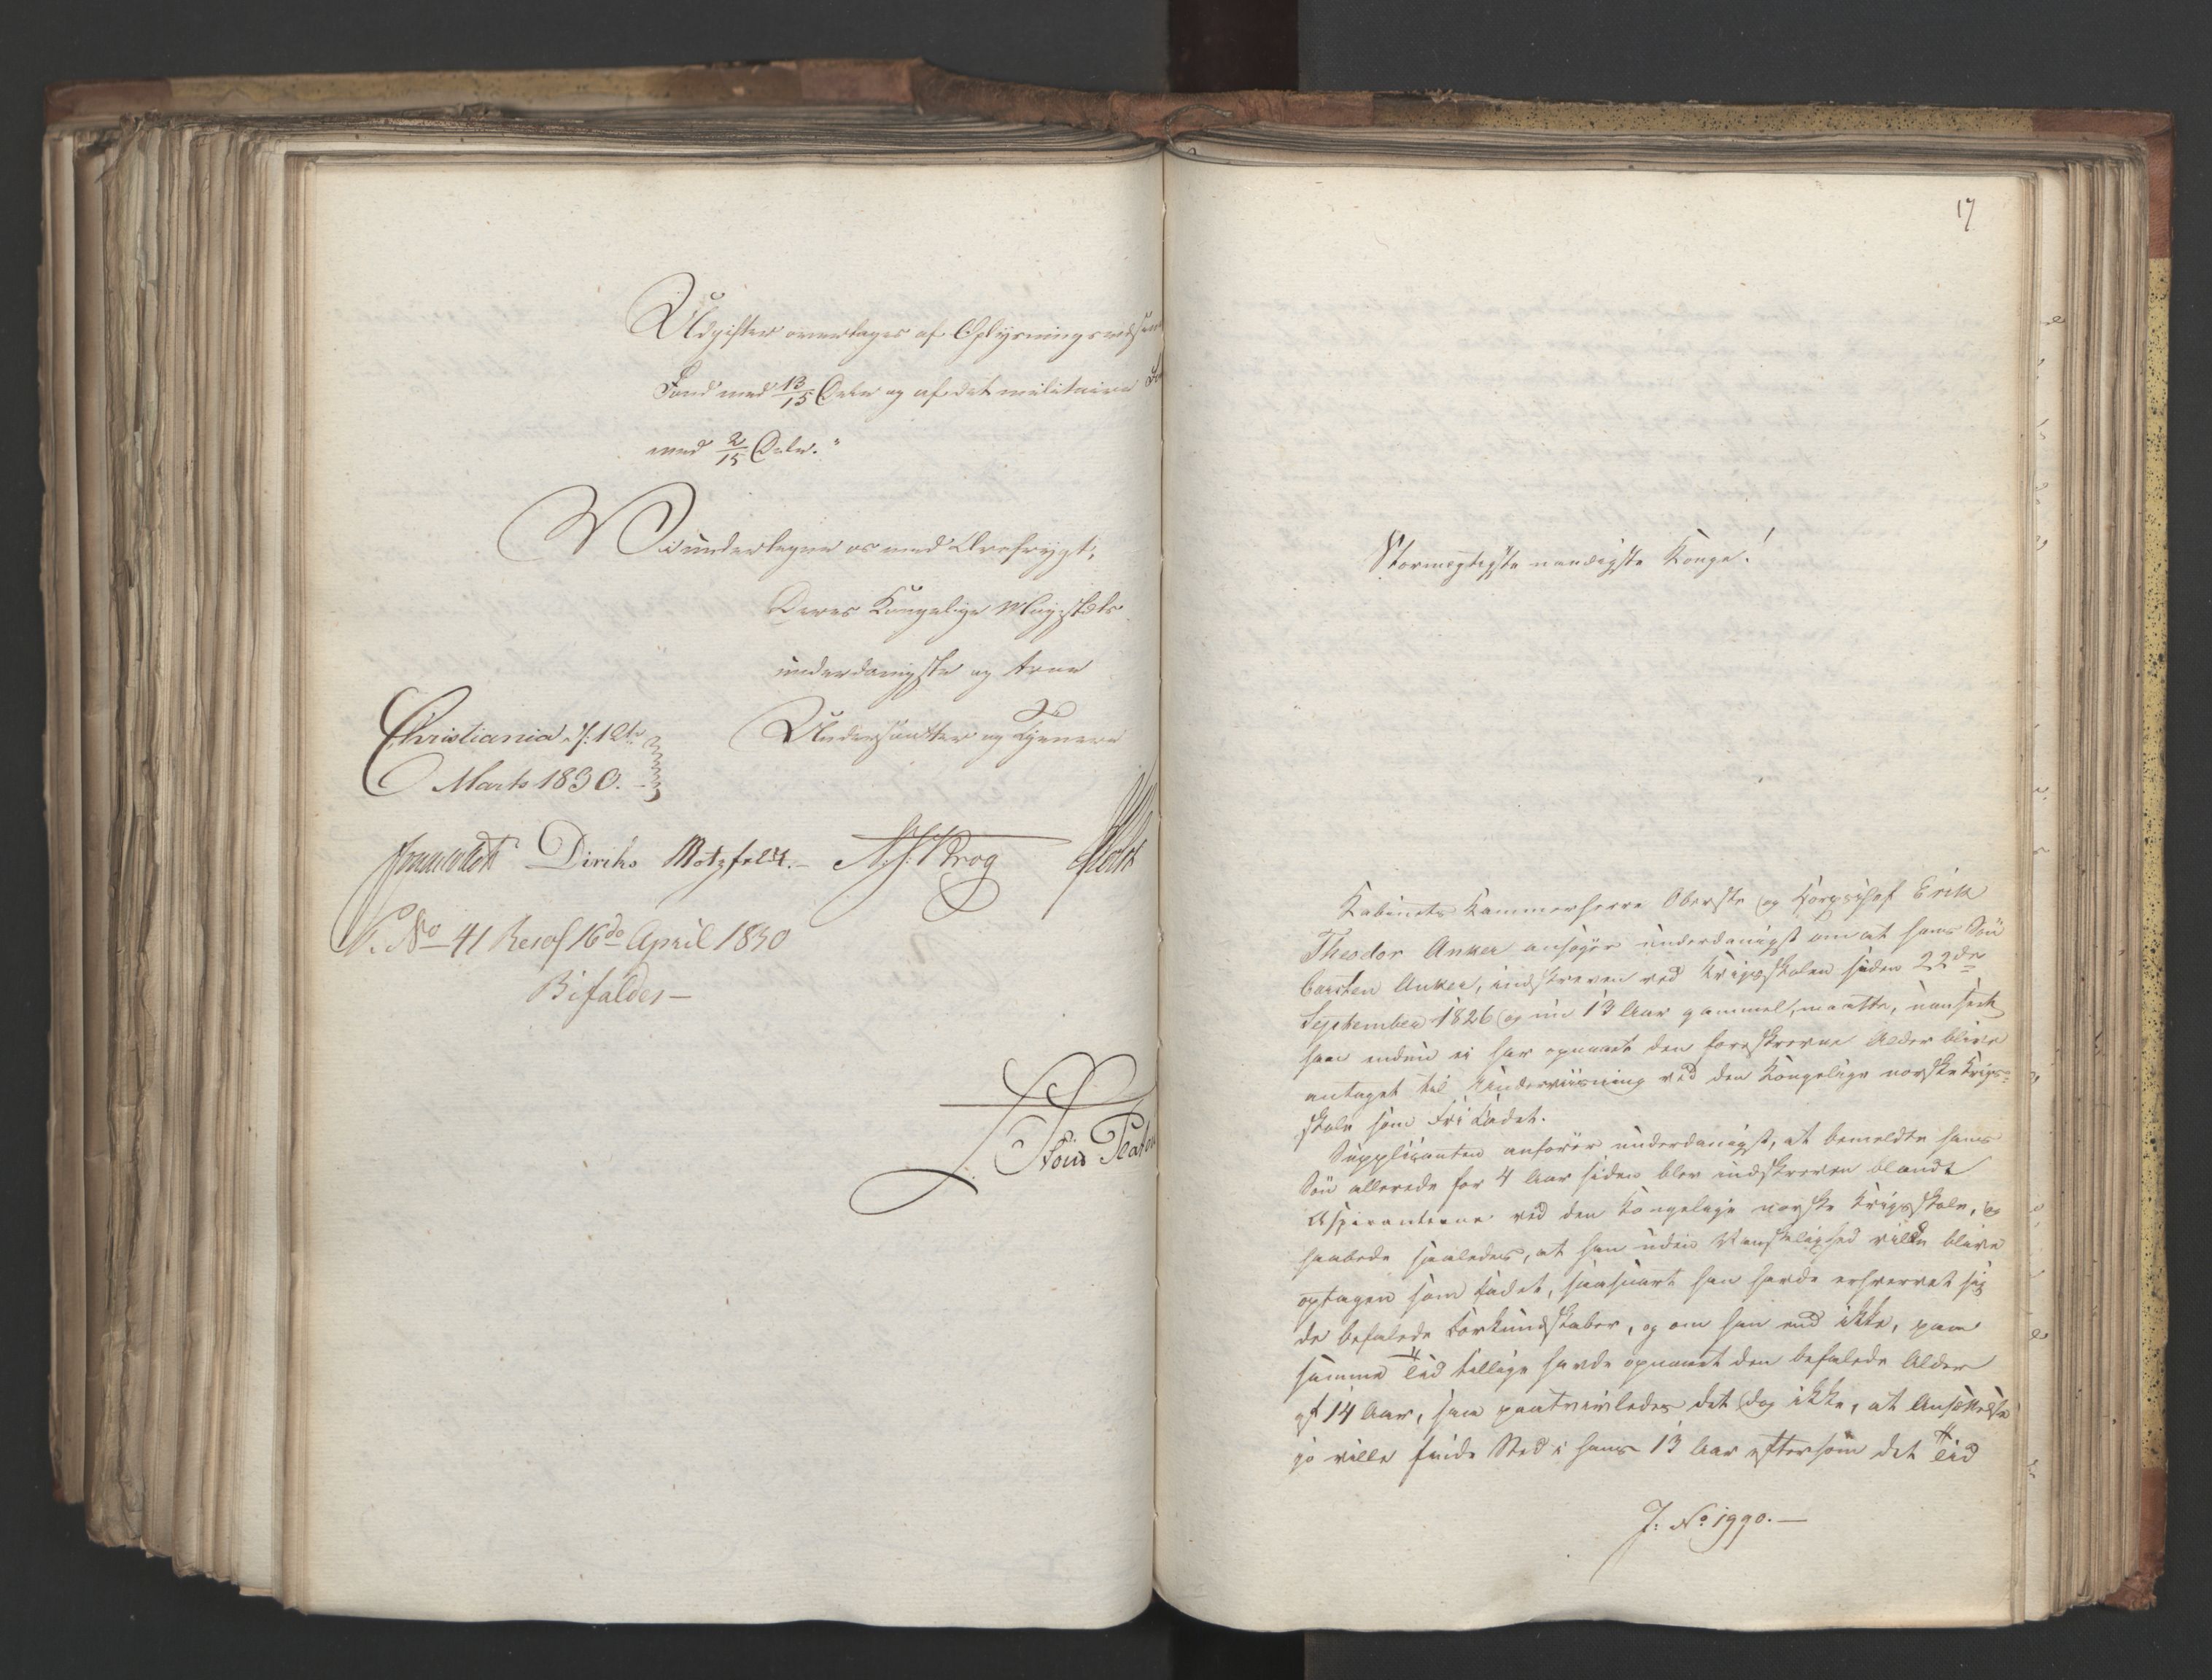 Udgifter overtages af Oplysningsvæsenets
Fond med 13/15 Dele og af det militaire
med 2/15 Dele."
Vi undertegne os med Ærefrygt,
Deres Kongelige Majestæts
underdanigste og troe
Undersaatter og Tjenere
Christiania d: 12te
Marts 1830.
Diriks Motzfeldt. Krog Holst
N. No 41 Resol 16de April 1830
Bifaldes —
Platen
17
Stormægtigste naadigste Konge!
Kabinets Kammerherre Oberste og Korpschef Erik
Theodor Anker ansøger underdanigst om at hans Søn
Carsten Anker, indskreven ved Krigsskolen siden 22de
September 1826 og nu 13 Aar gammel, maatte, uanseet
han endnu ei har opnaaet den foreskrevne Alder blive
antaget til Underviisning ved den Kongelige norske Krigs=
skole som Fri Cadet.
Supplicanten anfører underdanigst, at bemeldte hans
Søn allerede for 4 Aar siden blev indskreven blandt
Aspiranterne ved den Kongelige norske Krigsskole, og
haabede saaledes, at han uden Vanskelighed vilde blive
optagen som Cadet, saasnart han havde erhvervet sig
de befalede Forkundskaber, og om han end ikke, paa
samme Tid tillige havde opnaaet den befalede Alder
af 14 Aar, saa paatvivledes det dog ikke, at Ansættelse
jo ville finde Sted i hans 13 Aar eftersom det Tid
J: No 1990. —